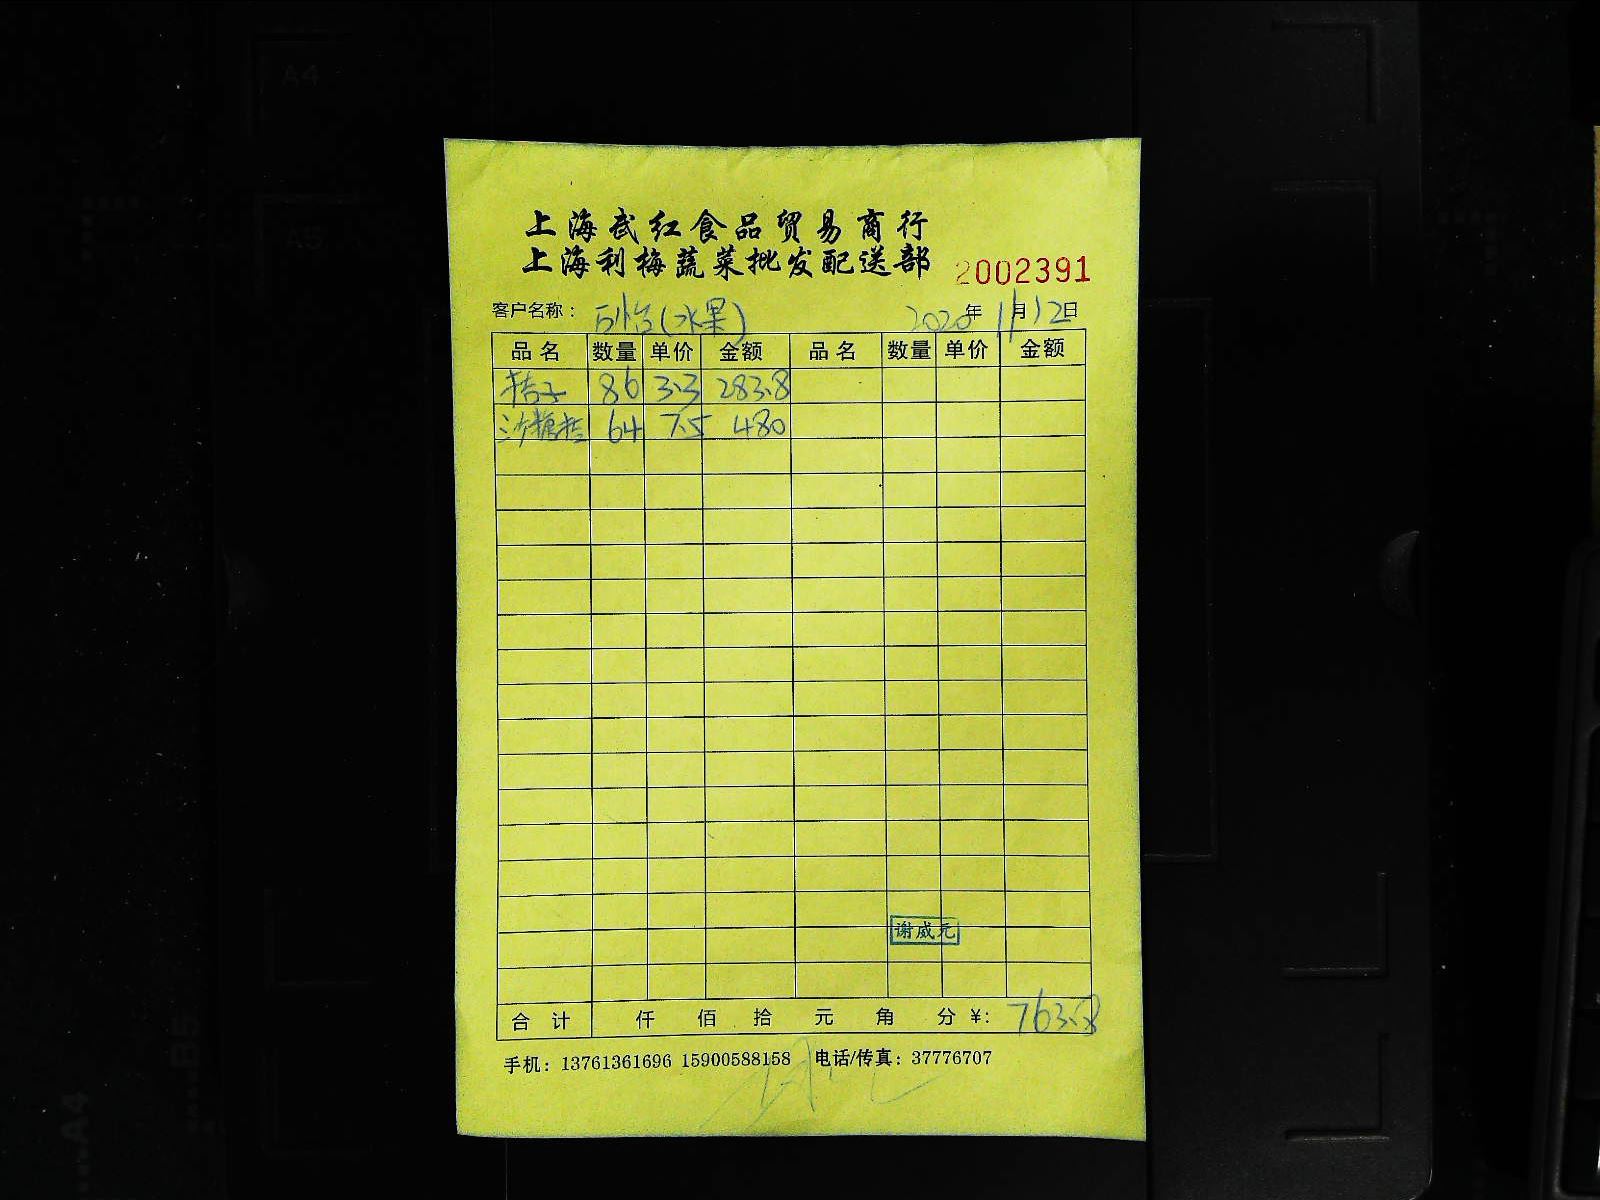 上海武红食品贸易商行
上海利梅蔬菜批发配送部 2002391
客户名称： (水果) 2020年11月12日
品名 数量 单价 金额 品名 数量 单价 金额
桔子 86 3.3 283.8
沙糖桔 64 7.5 480
谢威元
合计 仟 佰 拾 元 角 分 ¥: 763.8
手机：13761361696 15900588158 电话/传真：37776707